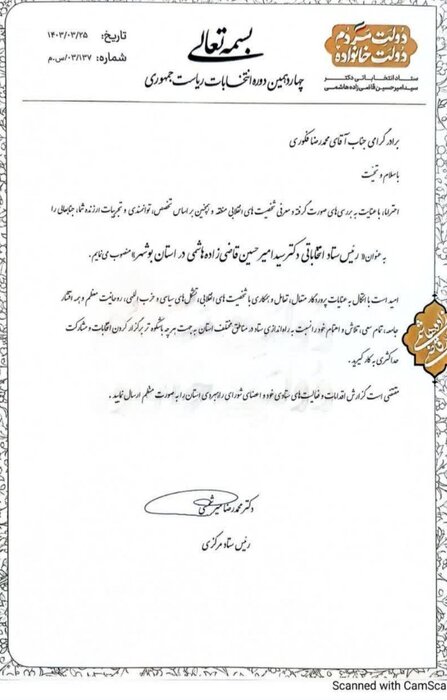 دولت مردم
دولت خانواده
ستاد انتخاباتی دکتر
سیدامیرحسین قاضی‌زاده‌هاشمی
بسمه تعالی
تاریخ: ۱۴۰۳/۰۳/۲۵
شماره: ۰۳/۱۳۷/س.م
چهاردهمین دوره انتخابات ریاست جمهوری
برادر گرامی جناب آقای محمدرضا فکوری
با سلام و تحیت
احتراماً، با عنایت به بررسی‌های صورت گرفته و معرفی شخصیت های انقلابی منطقه و همچنین بر اساس تخصص، توانمندی و تجربیات ارزنده شما، جنابعالی را
به عنوان « رئیس ستاد انتخاباتی دکتر سید امیر حسین قاضی زاده هاشمی در استان بوشهر » منصوب می نمایم.
امید است با اتکال به عنایات پروردگار متعال، تعامل و همکاری با شخصیت های انقلابی، تشکل‌های سیاسی و حزب الهی، روحانیت معظم و همه اقشار
جامعه، تمام سعی، تلاش و اهتمام خود را نسبت به راه‌اندازی ستاد در مناطق مختلف استان به جهت هر چه باشکوه تر برگزار کردن انتخابات و مشارکت
حداکثری به کار گیرید.
مقتضی است گزارش اقدامات و فعالیت‌های ستادی خود و اعضای شورای راهبردی استان را به صورت منظم ارسال نمایید.
دکتر محمدرضا میرشمسی
رئیس ستاد مرکزی
Scanned with CamSca